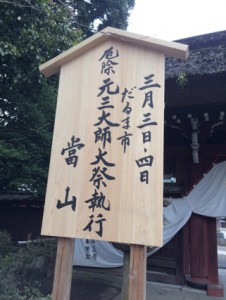 三月三日・四日
だるま市
厄除元三大師大祭執行
當山